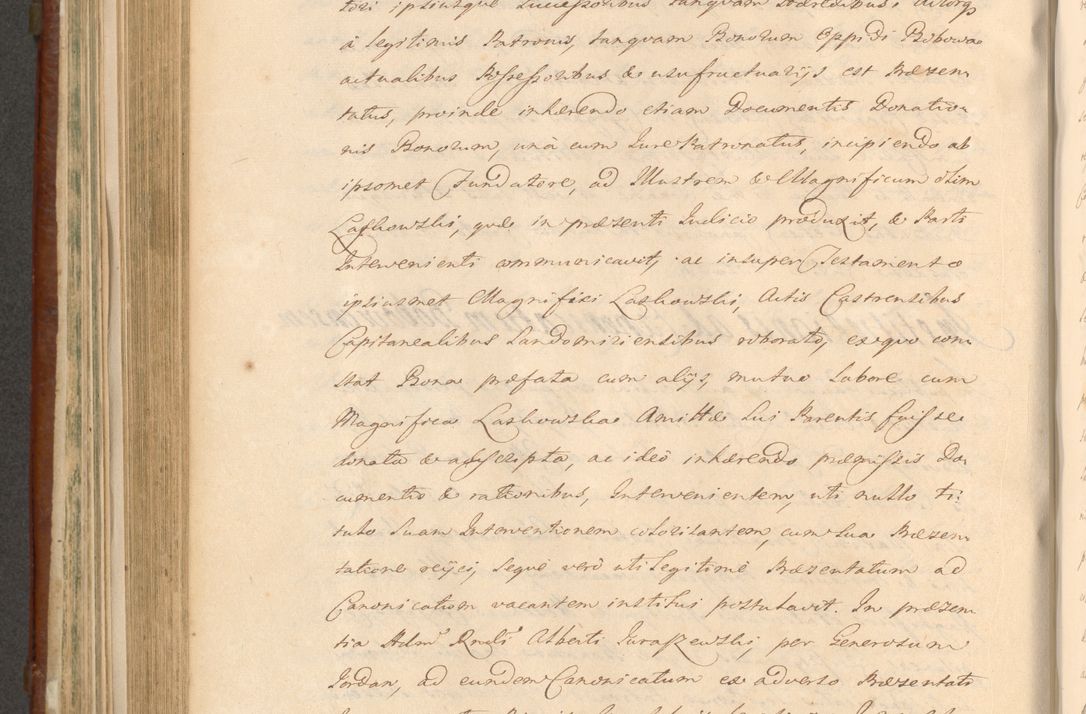 tori ipsiusque Successoribus tanquam Hæredibus,
à legitimis Patronis, tanquam Bonorum Oppidi Bobowa
actualibus Possessoribus & usufructuarijs est Præsen
tatus, proinde inhærendo etiam Documentis Donatio
nis Bonorum, unà cum Jure Patronatus, incipiendo ab
ipsomet Fundatore, ad Illustrem & Magnificum olim
Laskowski, quæ in præsenti Judicio produxit, & Parti
Intervenienti communicavit, ac insuper Testamento
ipsiusmet Magnifici Laskowski, Actis Castrensibus
Capitanealibus Sandomiriensibus roborato, ex quo con
stat Bona præfata cum alijs, mutuo labore cum
Magnifica Laskowska Amitta Sui Parentis fuisse
donata & adscripta, ac ideò inhærendo præmissis Do
cumentis & rationibus, Intervenientem, uti nullo ti
tulo Suam Interventionem colorisantem, cum sua Præsen
tatione reijci, Seque verò uti legitimè Præsentatum ad
Canonicatum vacantem institui postulavit. In præsen
tia Adm. Rndi Alberti Juraszewski, per Generosum
Jordan, ad eundem Canonicatum ex adverso Præsentati